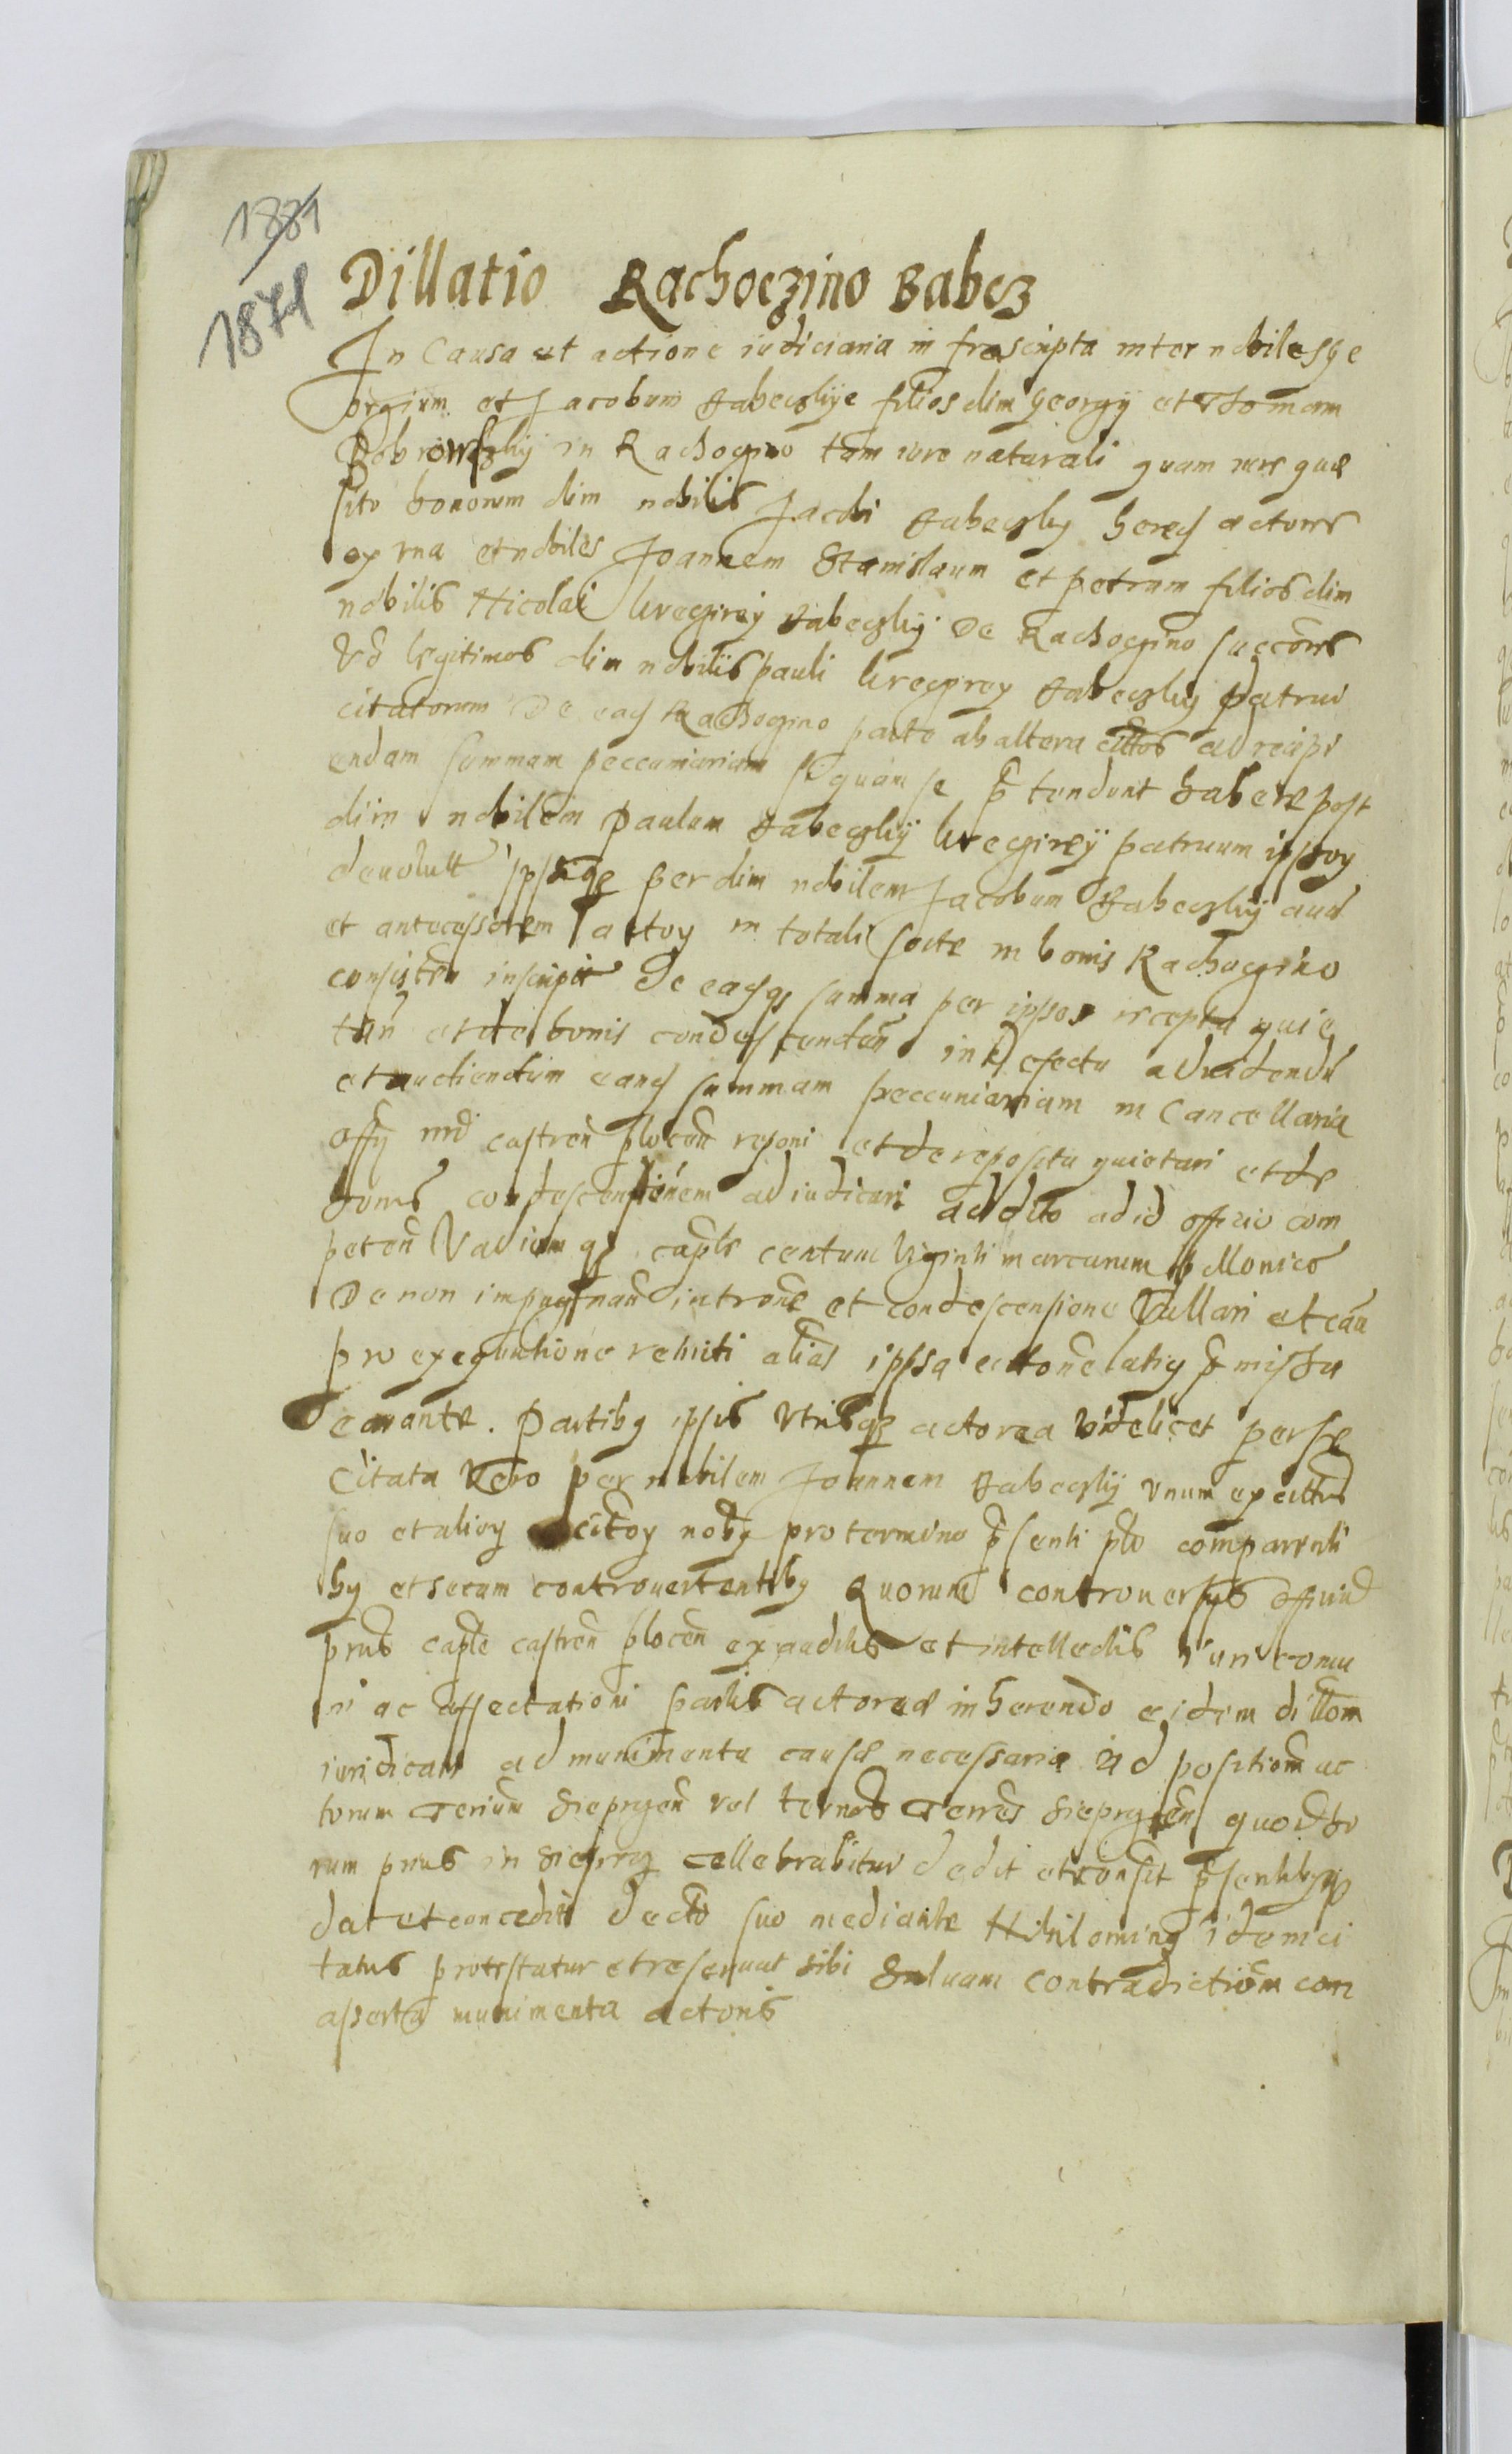 1881
1871
Dillatio Rachoczino Babcz
In Causa et actione iudiciaria in frascripta inter nobiles Ge
orgium et Jacobum Babeczkye filios olim Georgy et Thomam
Dobrowszky in Rachoczino tam iure naturali quam iure que
sito bonorum olim nobilis Jacobi Babeczky hered actores
ex vna et nobiles Joannem Stanislaum et petrum filios olim
nobilis Nicolai Babeczky De Rachoczino succores
legitimos olim nobilis pauli Babeczky patrui
citatorum De ead Rachoczino parte ab altera cittos ad recipi
endam summam peccuniariam quam se p tendunt habere post
olim nobilem Paulum Babeczky patruum ipsor
deuolutt ipsique per olim nobilem Jacobum Babeczky auu
et antecessorem actor in totali sorte in bonis Rachoczino
consisten inscript De eadq summa per ipsos recepta quie
tan et de bonis condescenden in defectu ad videndu
et audiendum eand summam peccuniariam in Cancellaria
offy castren plocen reponi et de reposita quietari et de
bonis condescensionem adiudicari addito ad id officio com
peten Vadium q captle centum viginti marcarum pollonico
De non impugnan introne et condescensione Vallari et cau
pro exequutione remitti alias ipsa cittone latiq p missa
e anante. Partibq ipsis vtrisqe actorea videlicet per se
Citata vero per nobilem Joannem Babeczky vnum ex cittis
suo et alior citor noïe pro termino p senti pto comparenti
by et secum controuertentiby Quorum controuersys officiu
prns captle castren plocen exauditis et intellectis iuri comu
ni ac affectationi partis actoree inherendo eidem dittom
iuridicam ad munimenta cause necessaria ad positiom ac
torum Terium Sieprzcen vel termos Terres Sieprzcen quod fo
rum prius in Sieprcz cellebrabitur dedit et consit p sentibqq
dat et concedit decto suo mediante Nihilominq idem ci
tatus protestatur et reseruat sibi Saluam contradictiom con
asserta munimenta actoris